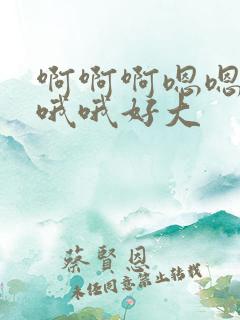 啊啊啊嗯嗯
哦哦好大
蔡贤恩
未经同意禁止转载